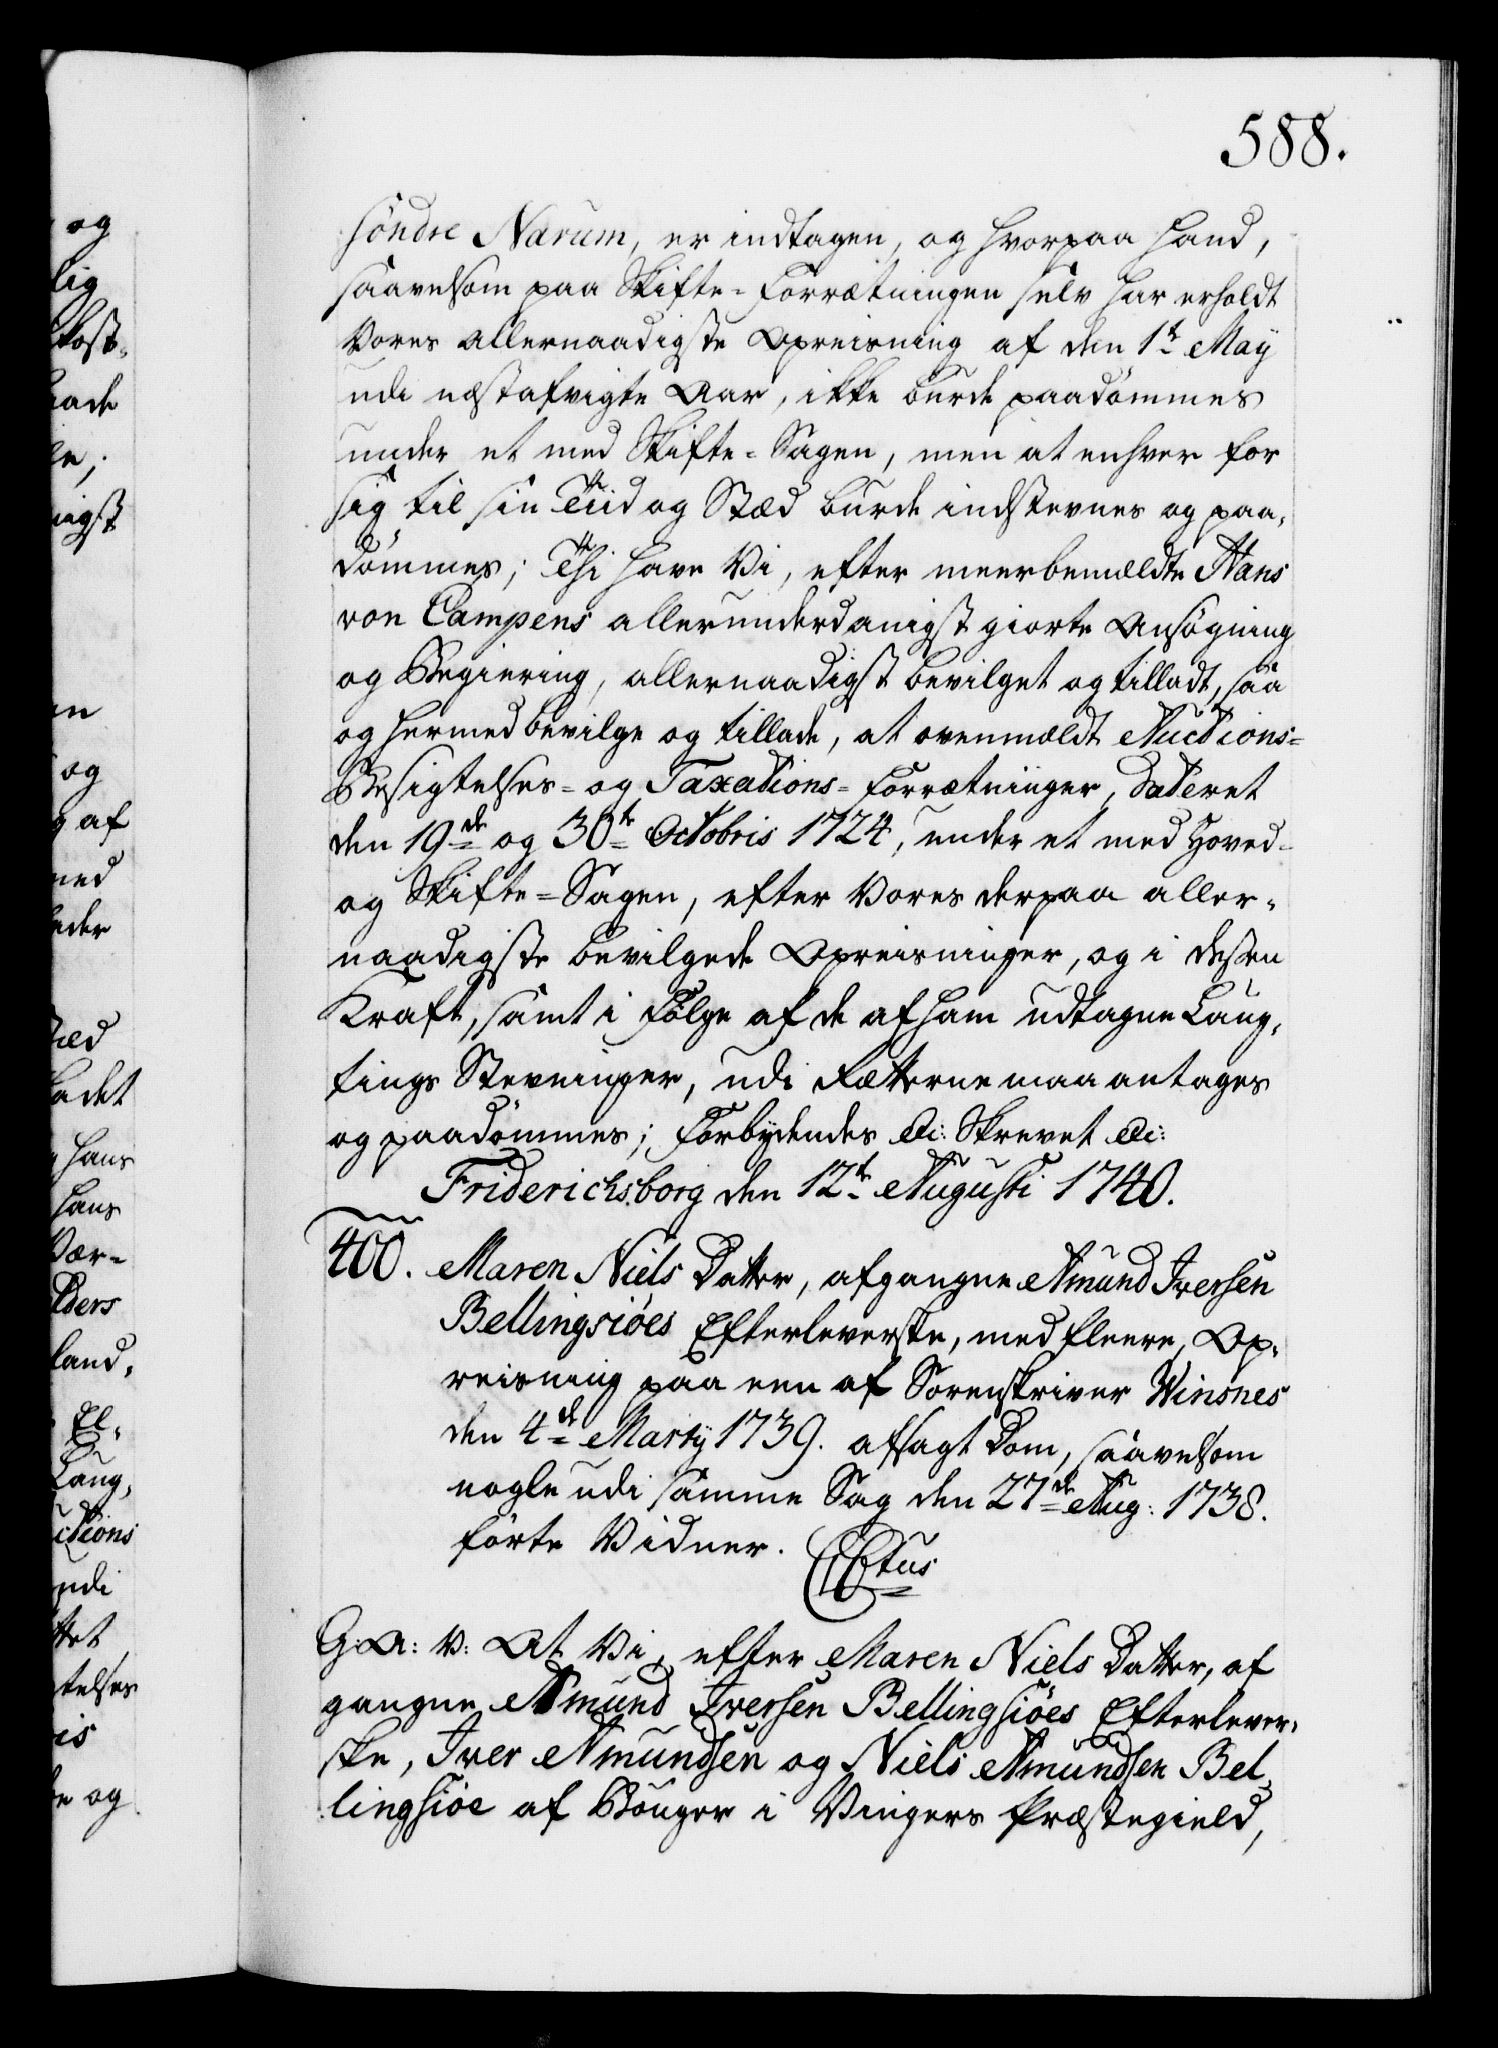 588.
söndre Nærum, er indtagen, og hvorpaa hand,
saavelsom paa Skifte-Forrætningen selv har erholdt
Vores allernaadigste Opreisning af den 1te May
udi næstafvigte Aar, ikke burde paadömmes
under et med Skifte-Sagen, men at enhver for
sig til sin Tiid og Stæd burde indstevnes og paa-
dömmes; Thi have Vi, efter meerbemældte Hans
von Campens allerunderdanigst giorte Ansögning
og Begiering, allernaadigst bevilget og tilladt, saa
og hermed bevilge og tillade, at ovenmældt Auctions-
Besigtelses- og Taxations-Forrætninger, dateret
den 19de og 30te Octobris 1724, under et med Hoved-
og Skifte-Sagen, efter Vores derpaa aller-
naadigste bevilgede Opreisninger, og i dessen
Kraft, samt i Fölge af de af ham udtagne Laug-
tings Stevninger, udi Rætterne maa antages
og paadömmes; Forbydendes &c: Skrevet &c:
Friderichsborg den 12te Augusti 1740.
400. Maren Niels Datter, afgangne Amund Iversen
Bellingsiöes Efterleverske, med fleere, Op-
reisning paa een af Sorenskriver Winsnes
den 4de Marty 1739. afsagt Dom, saavelsom
nogle udi samme Sag den 27de Aug: 1738.
förte Vidner.
G: A: V: At Vi, efter Maren Niels Datter, af
gangne Amund Iversen Bellingsiöes Efterlever-
ske, Iver Amundsen og Niels Amundsen Bel-
lingsiöe af Bouger i Vingers Præstegield,
og
lig
aade
ingst
og
af
ned
adet
hans
hans
Vær-
land,
El-
Laug-
ctions
udi
telses
is
og